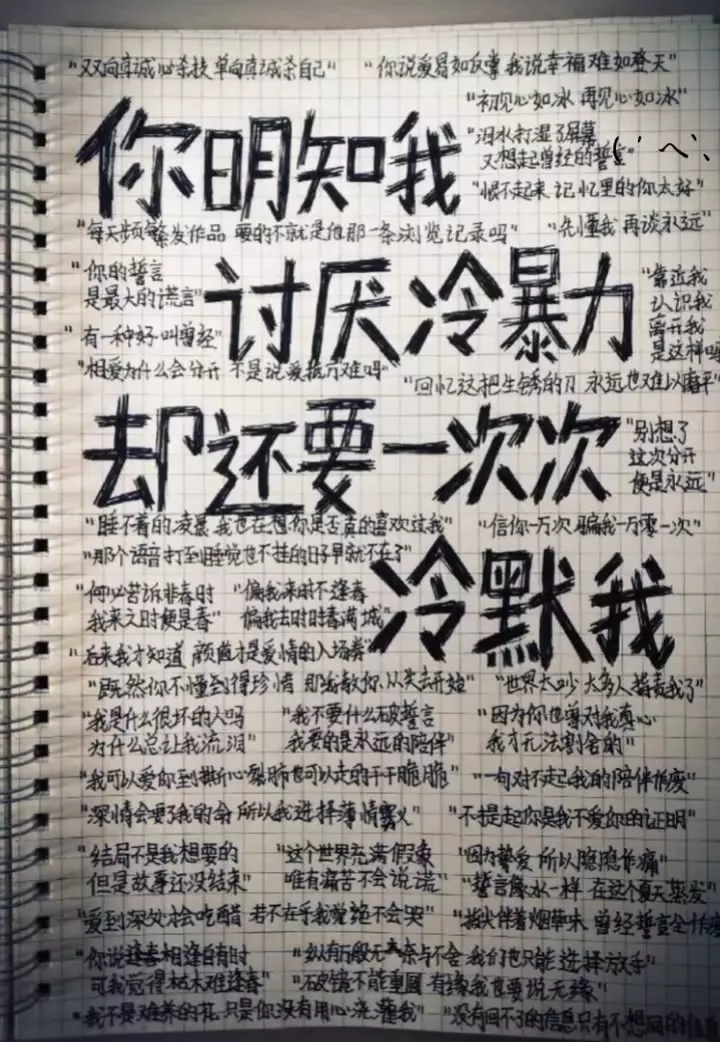 “双向真诚必杀技 单向真诚杀自己” “你说爱易如反掌 我说幸福难如登天”
“初见心如冰 再见心如冰”
你明知我
“泪水打湿了屏幕
又想起曾经的誓言”
“恨不起来 记忆里的你太好”
“每天频繁发作品 要的不就是他那一条浏览记录吗” “先懂我 再谈永远”
“你的誓言
是最大的谎言”
讨厌冷暴力
“靠近我
认识我
离开我
是这样吗
“有一种好叫曾经”
“相爱为什么会分开 不是说爱抵万难吗”
“回忆这把生锈的刀 永远也难以磨平”
却还要一次次
“别想了
这次分开
便是永远”
“睡不着的凌晨 我也在想你是否真的喜欢过我” “信你一万次 骗我一万零一次”
“那个语音打到睡觉也不挂的日子早就不在了”
冷默我
“何必苦诉非春时
我来之时便是春”
“偏我来时不逢春
偏我去时时春满城”
“后来我才知道 颜值才是爱情的入场券”
“既然你不懂到得珍惜 那我教你从失去开始” “世界太吵 太多人指责我了”
“我是什么很坏的人吗
为什么总让我流泪”
“我不要什么破誓言
我要的是永远的陪伴”
“因为你也曾对我真心
我才无法割舍的”
“我可以爱你到撕心裂肺也可以走的干干脆脆” “一句对不起我的陪伴作废”
“深情会要了我的命 所以我选择薄情寡义” “不提起你是我不爱你的证明”
“结局不是我想要的
但是故事还没结束”
“这个世界充满假象
唯有痛苦不会说谎”
“因为挚爱 所以隐隐作痛”
“誓言像水一样 在这个夏天蒸发”
“爱到深处才会吃醋 若不在乎我觉绝不会哭” “指尖伴着烟草味 曾经誓言全作
“你说逢春相逢自有时
可我觉得枯木难逢春”
“纵有万般无奈与不会 我们也只能选择放手”
“破镜不能重圆 有缘我也要说无缘”
“我不是难养的花 只是你没有用心浇灌我” “没有回不了的信息只有不想回的信息